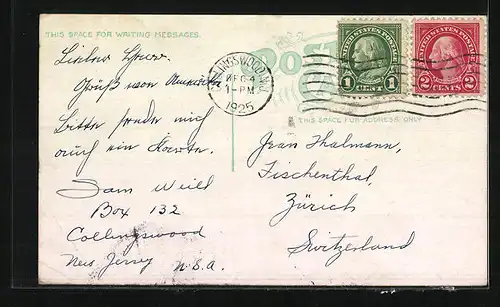 THIS SPACE FOR WRITING MESSAGES.
Lieber
Gruß von Amerika
Bitte sende mich
auch ein Karte.
Sam Weill
Box 132
Collingswood
New Jersey N.S.A.
POST
COLLINGSWOOD, N.J.
DEC 4
1-PM
1925
UNITED STATES POSTAGE
1 CENT 1
UNITED STATES POSTAGE
2 CENTS 2
THIS SPACE FOR ADDRESS ONLY
Jean Thalmann,
Fischenthal,
Zürich
Switzerland